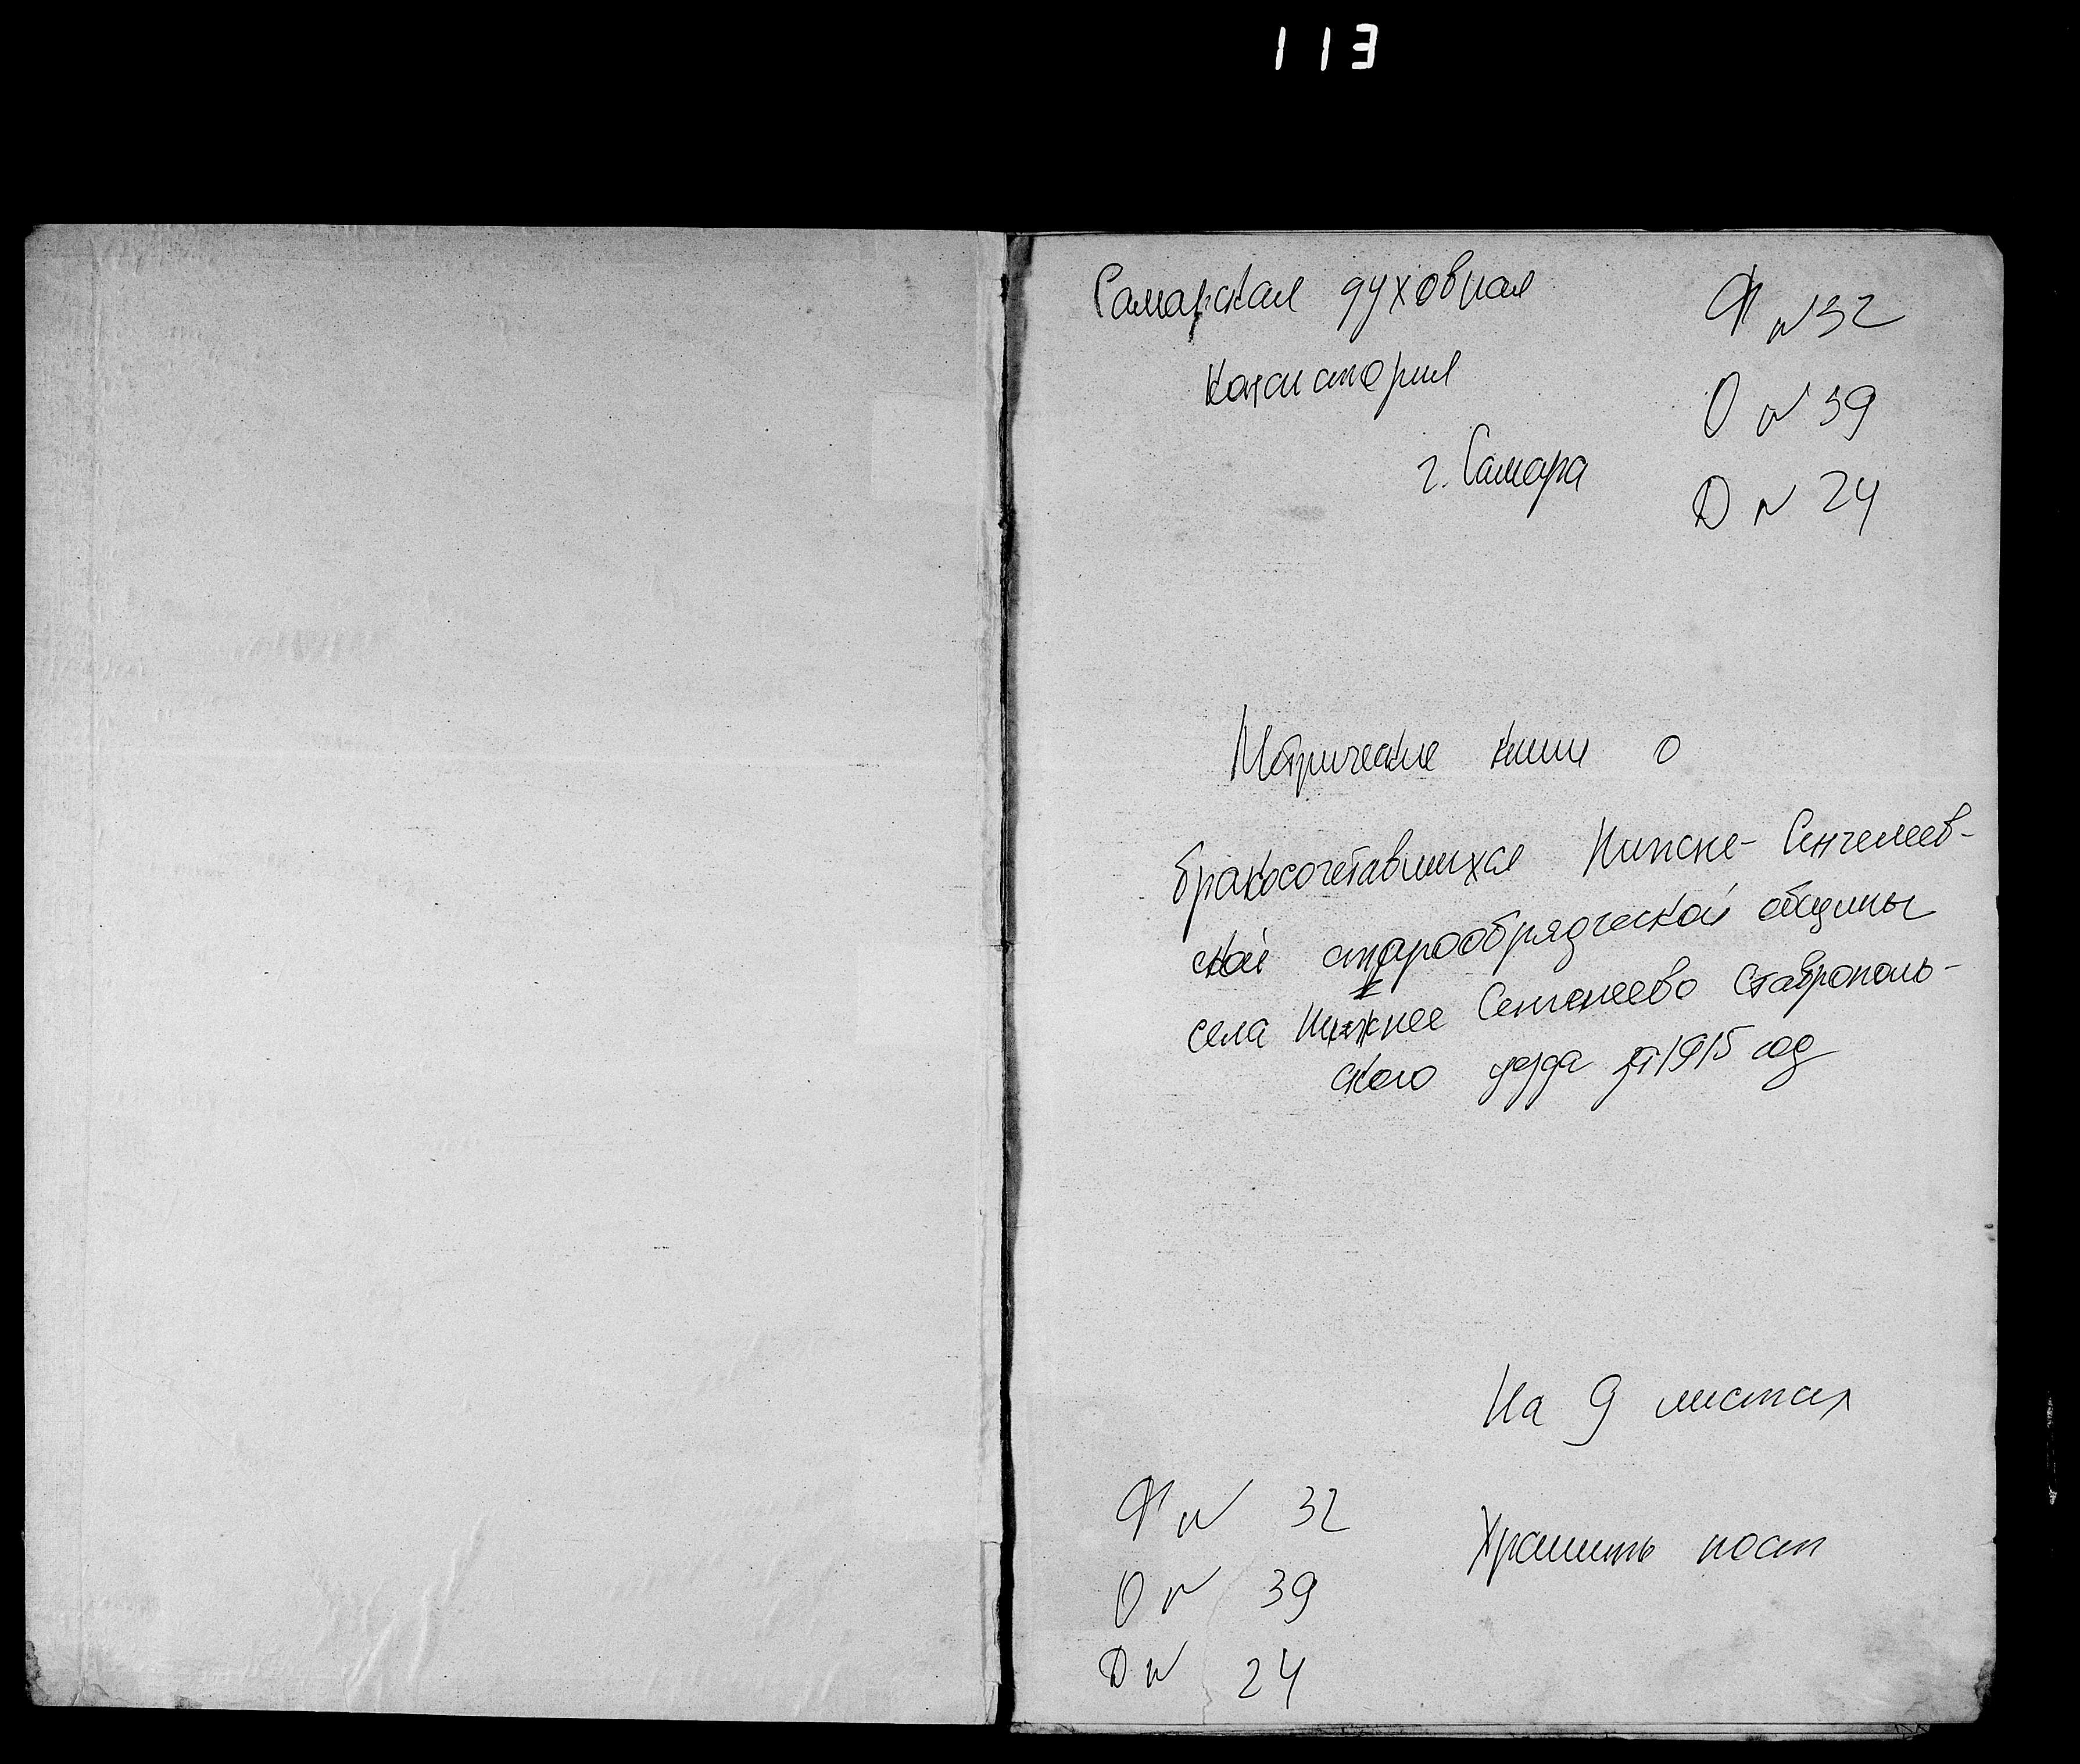 113
Самарская духовная
консистория
г. Самара
Ф № 32
О № 39
Д № 24
Метрические книги о
бракосочетавшихся Нижне-Сенчелеев-
ской старообрядческой общины
села Нижнее Сенчелеево Ставрополь-
ского уезда за 1915 год
На 9 листах
Ф № 32
О № 39
Д № 24
Хранить пост